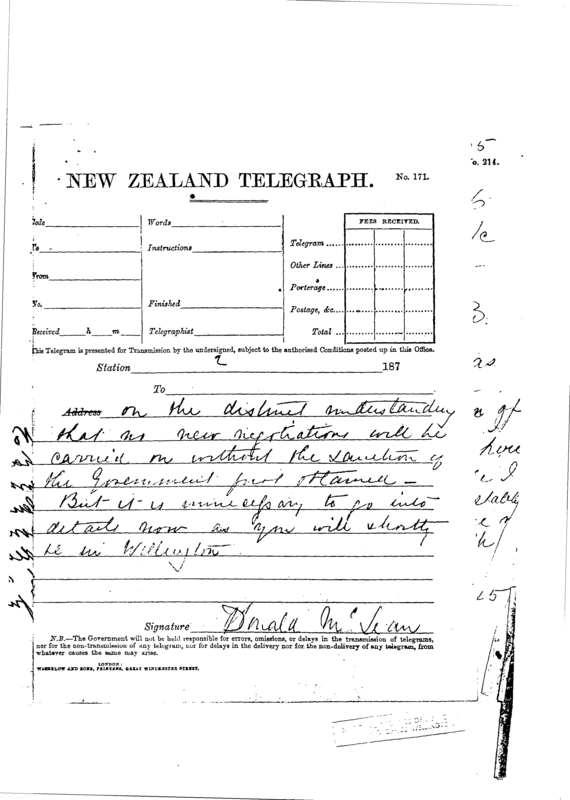 o. 214.
NEW ZEALAND TELEGRAPH. No. 171.
Code Words FEES RECEIVED.
To Instructions Telegram
Other Lines
From Porterage
No. Finished Postage, &c.
Received h m Telegraphist Total
This Telegram is presented for Transmission by the undersigned, subject to the authorised Conditions posted up in this Office.
Station 2 187
To
Address on the distinct understanding
that no new negotiations will be
carried on without the sanction of
the Government first obtained –
But it is unnecessary to go into
details now as you will shortly
be in Wellington
Signature Donald McLean
N.B.—The Government will not be held responsible for errors, omissions, or delays in the transmission of telegrams,
nor for the non-transmission of any telegram, nor for delays in the delivery nor for the non-delivery of any telegram, from
whatever causes the same may arise.
LONDON:
WATERLOW AND SONS, PRINTERS, GREAT WINCHESTER STREET.